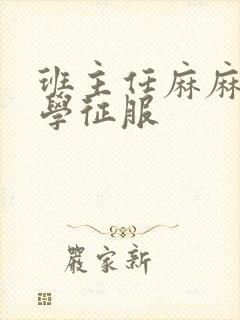 班主任麻麻
學征服
嚴家新